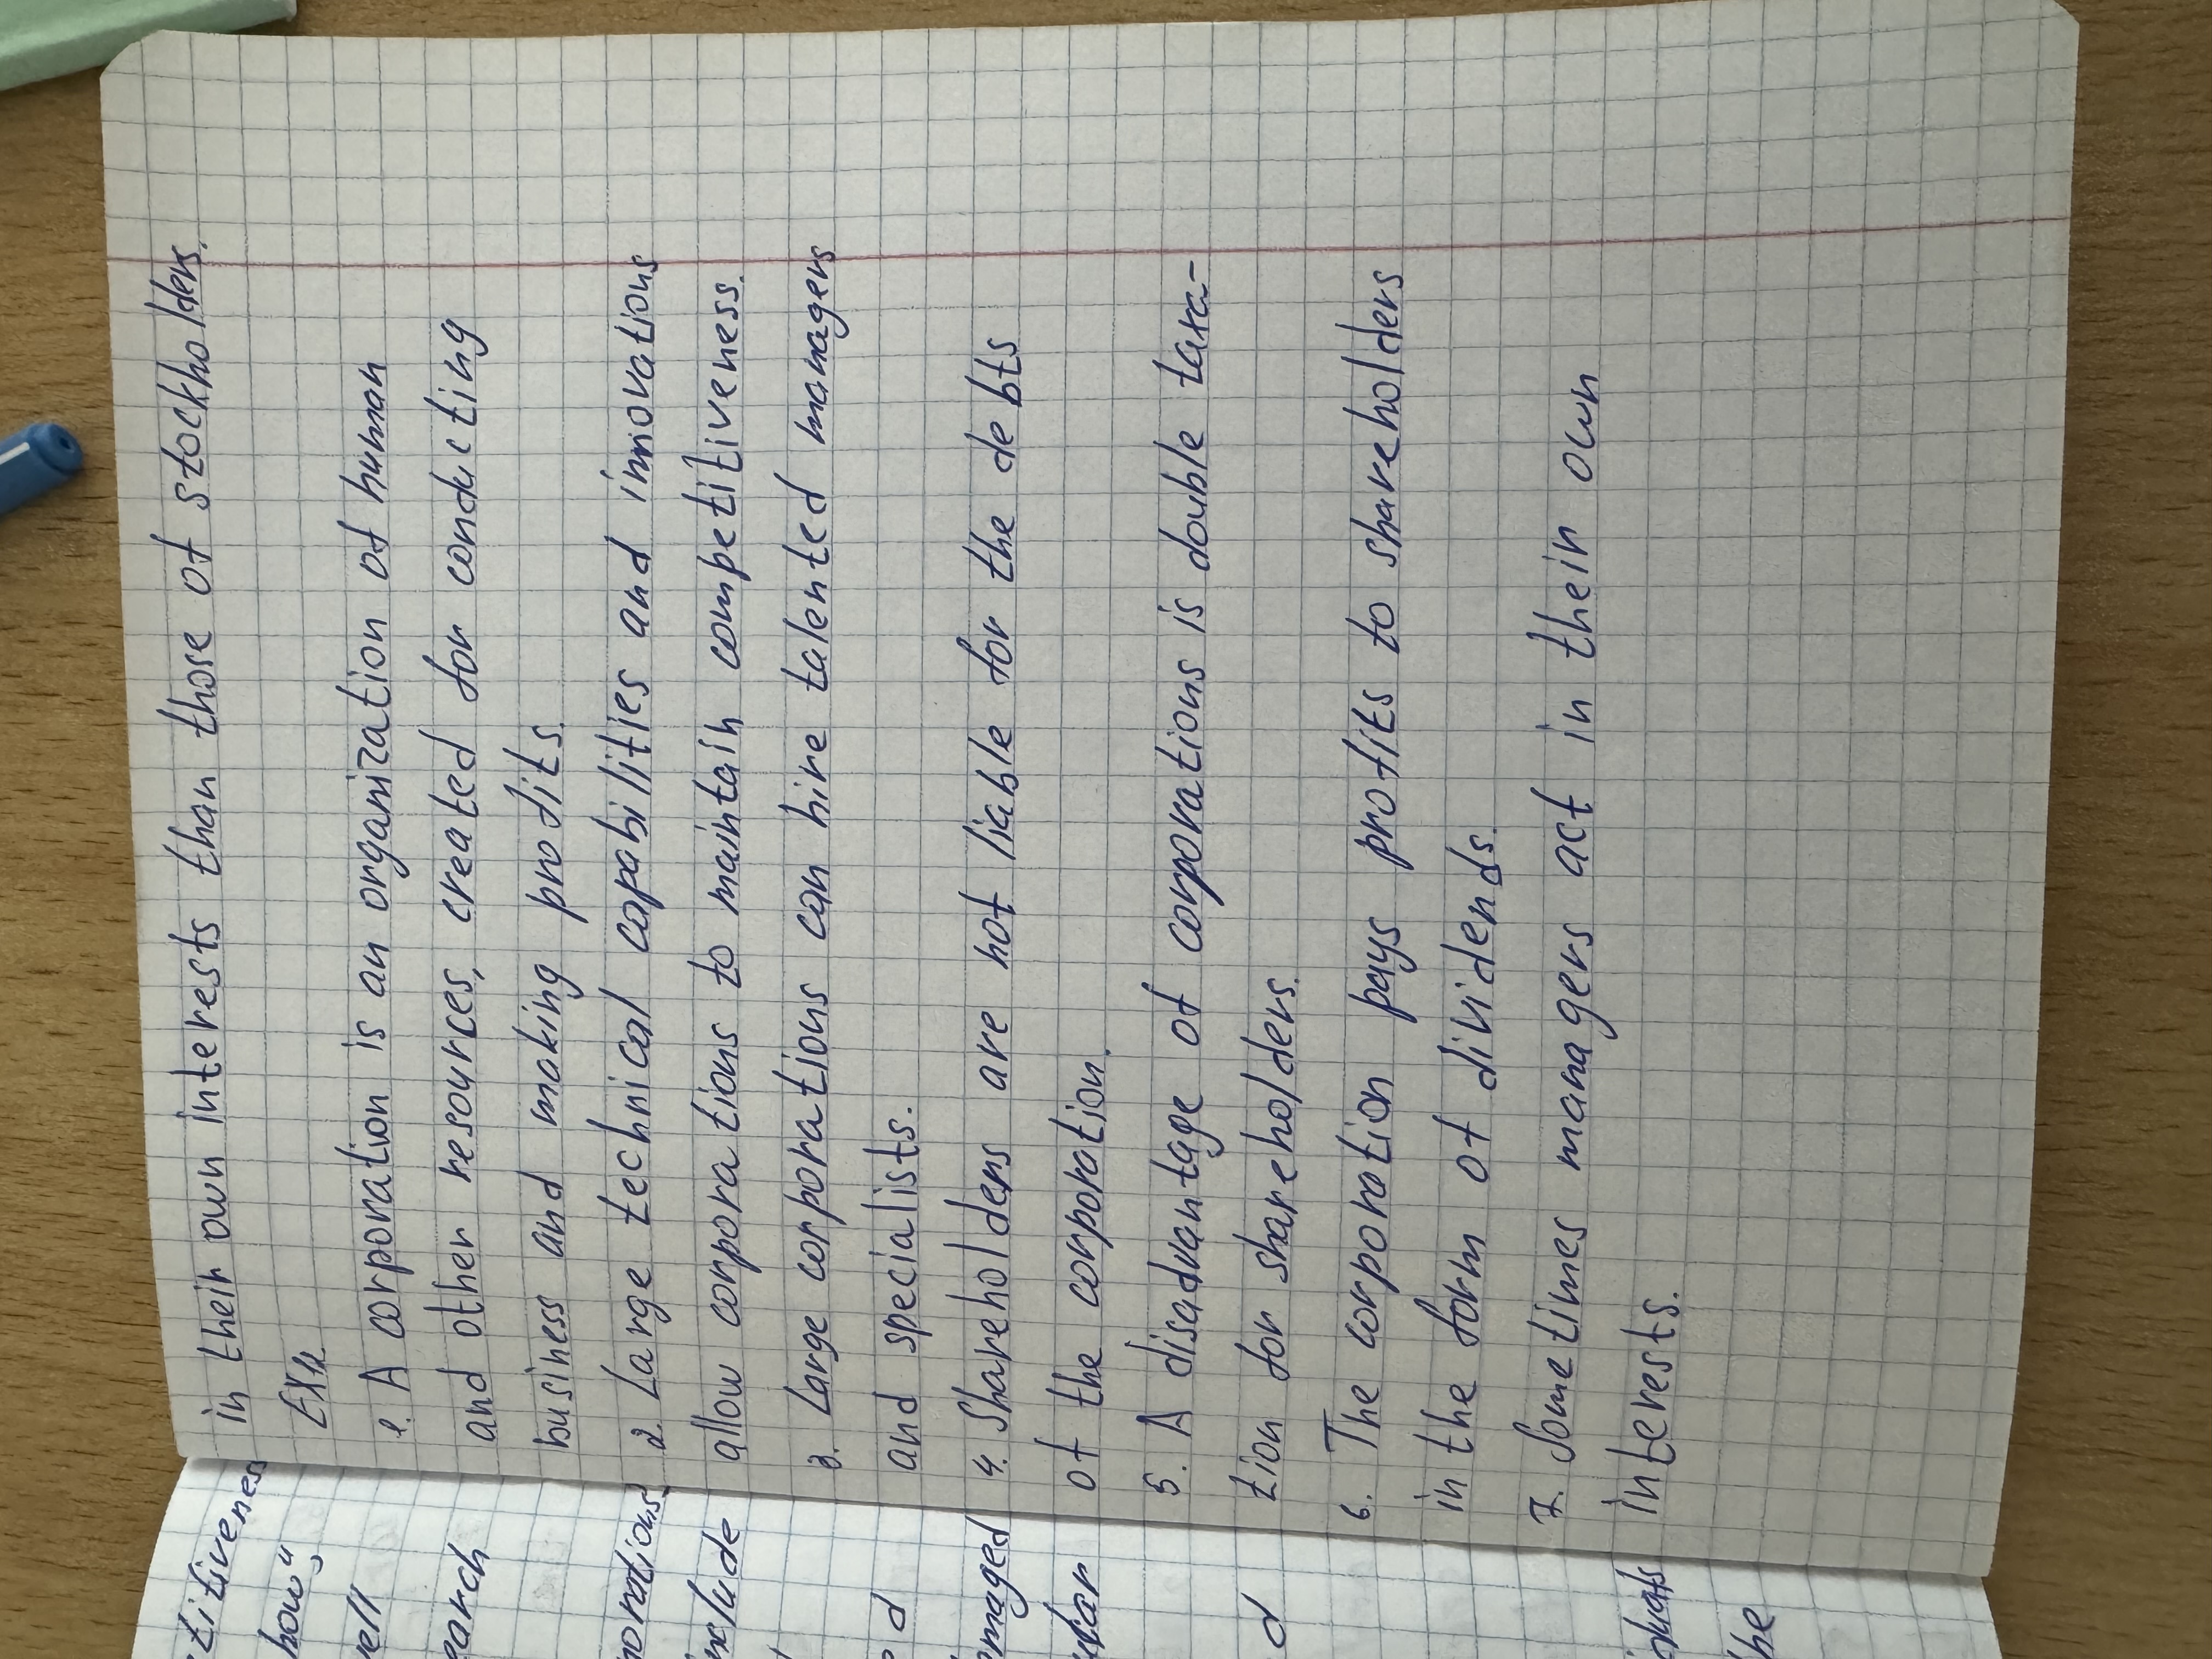 in their own interests than those of stockholders.
Ex4
1. A corporation is an organization of human
and other resources, created for conducting
business and making profits.
2. Large technical capabilities and innovations
allow corporations to maintain competitiveness.
3. Large corporations can hire talented managers
and specialists.
4. Shareholders are not liable for the debts
of the corporation.
5. A disadvantage of corporations is double taxa-
tion for shareholders.
6. The corporation pays profits to shareholders
in the form of dividends.
7. Sometimes managers act in their own
interests.
titivenes
how"
vell
earch
porations
include
d
maged
d
the